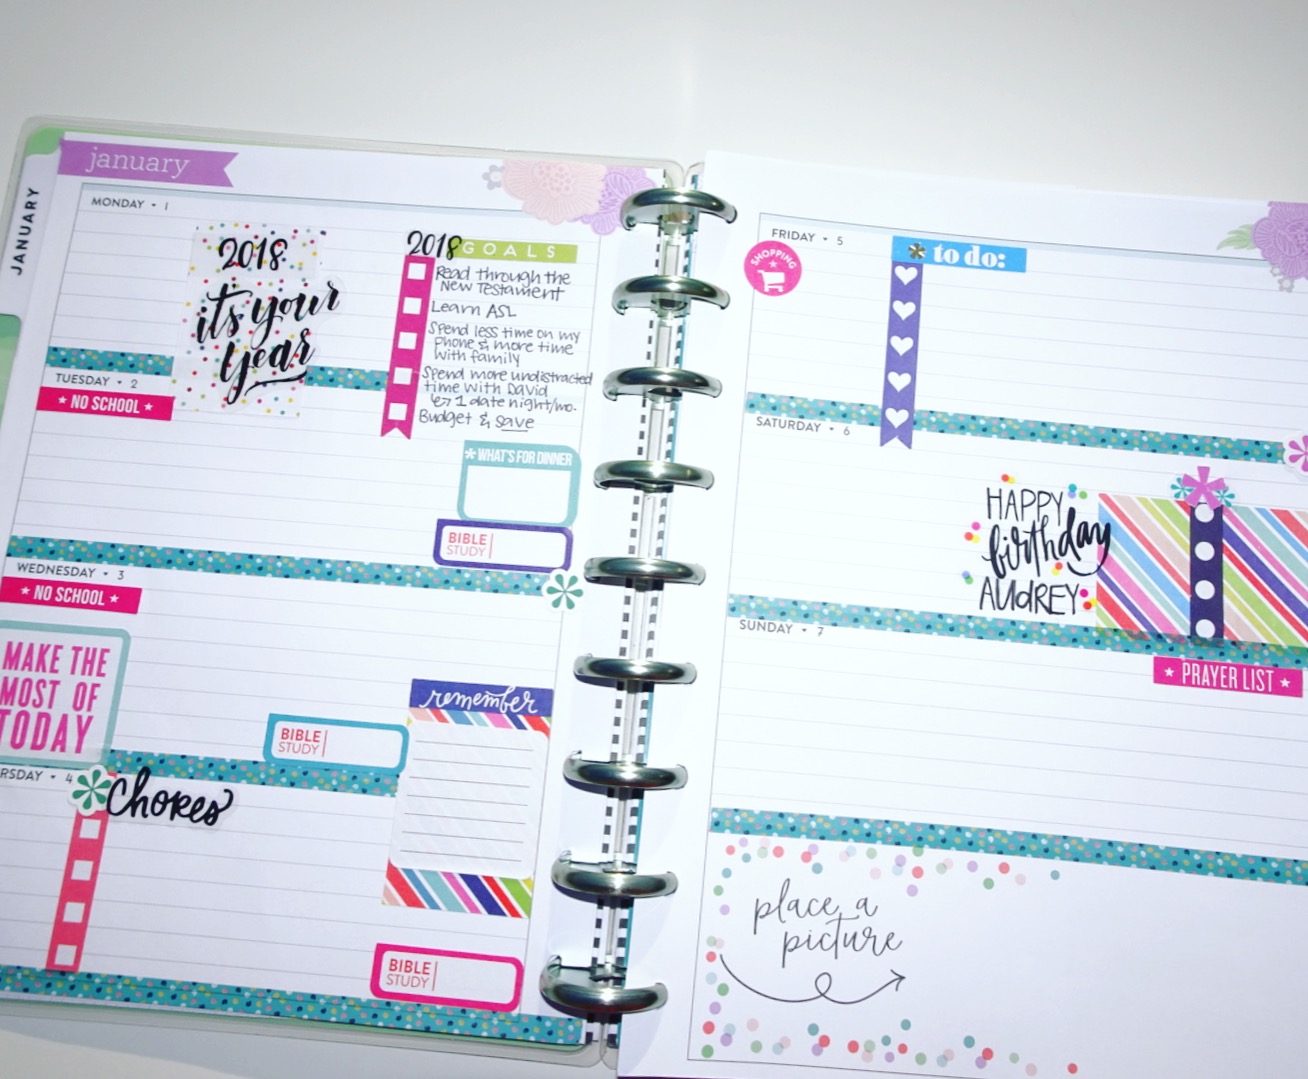 january
JANUARY
MONDAY • 1
2018
it's your
year
2018 GOALS
Read through the
New Testament
Learn ASL
Spend less time on my
phone & more time
with family
Spend more undistracted
time with David
↳ 1 date night/mo.
Budget & save
TUESDAY • 2
* NO SCHOOL *
* WHAT'S FOR DINNER
BIBLE
STUDY
WEDNESDAY • 3
* NO SCHOOL *
MAKE THE
MOST OF
TODAY
BIBLE
STUDY
remember
RSDAY • 4
Chores
BIBLE
STUDY
FRIDAY • 5
SHOPPING
to do:
SATURDAY • 6
HAPPY
birthday
AUdREY
SUNDAY • 7
* PRAYER LIST *
place a
picture